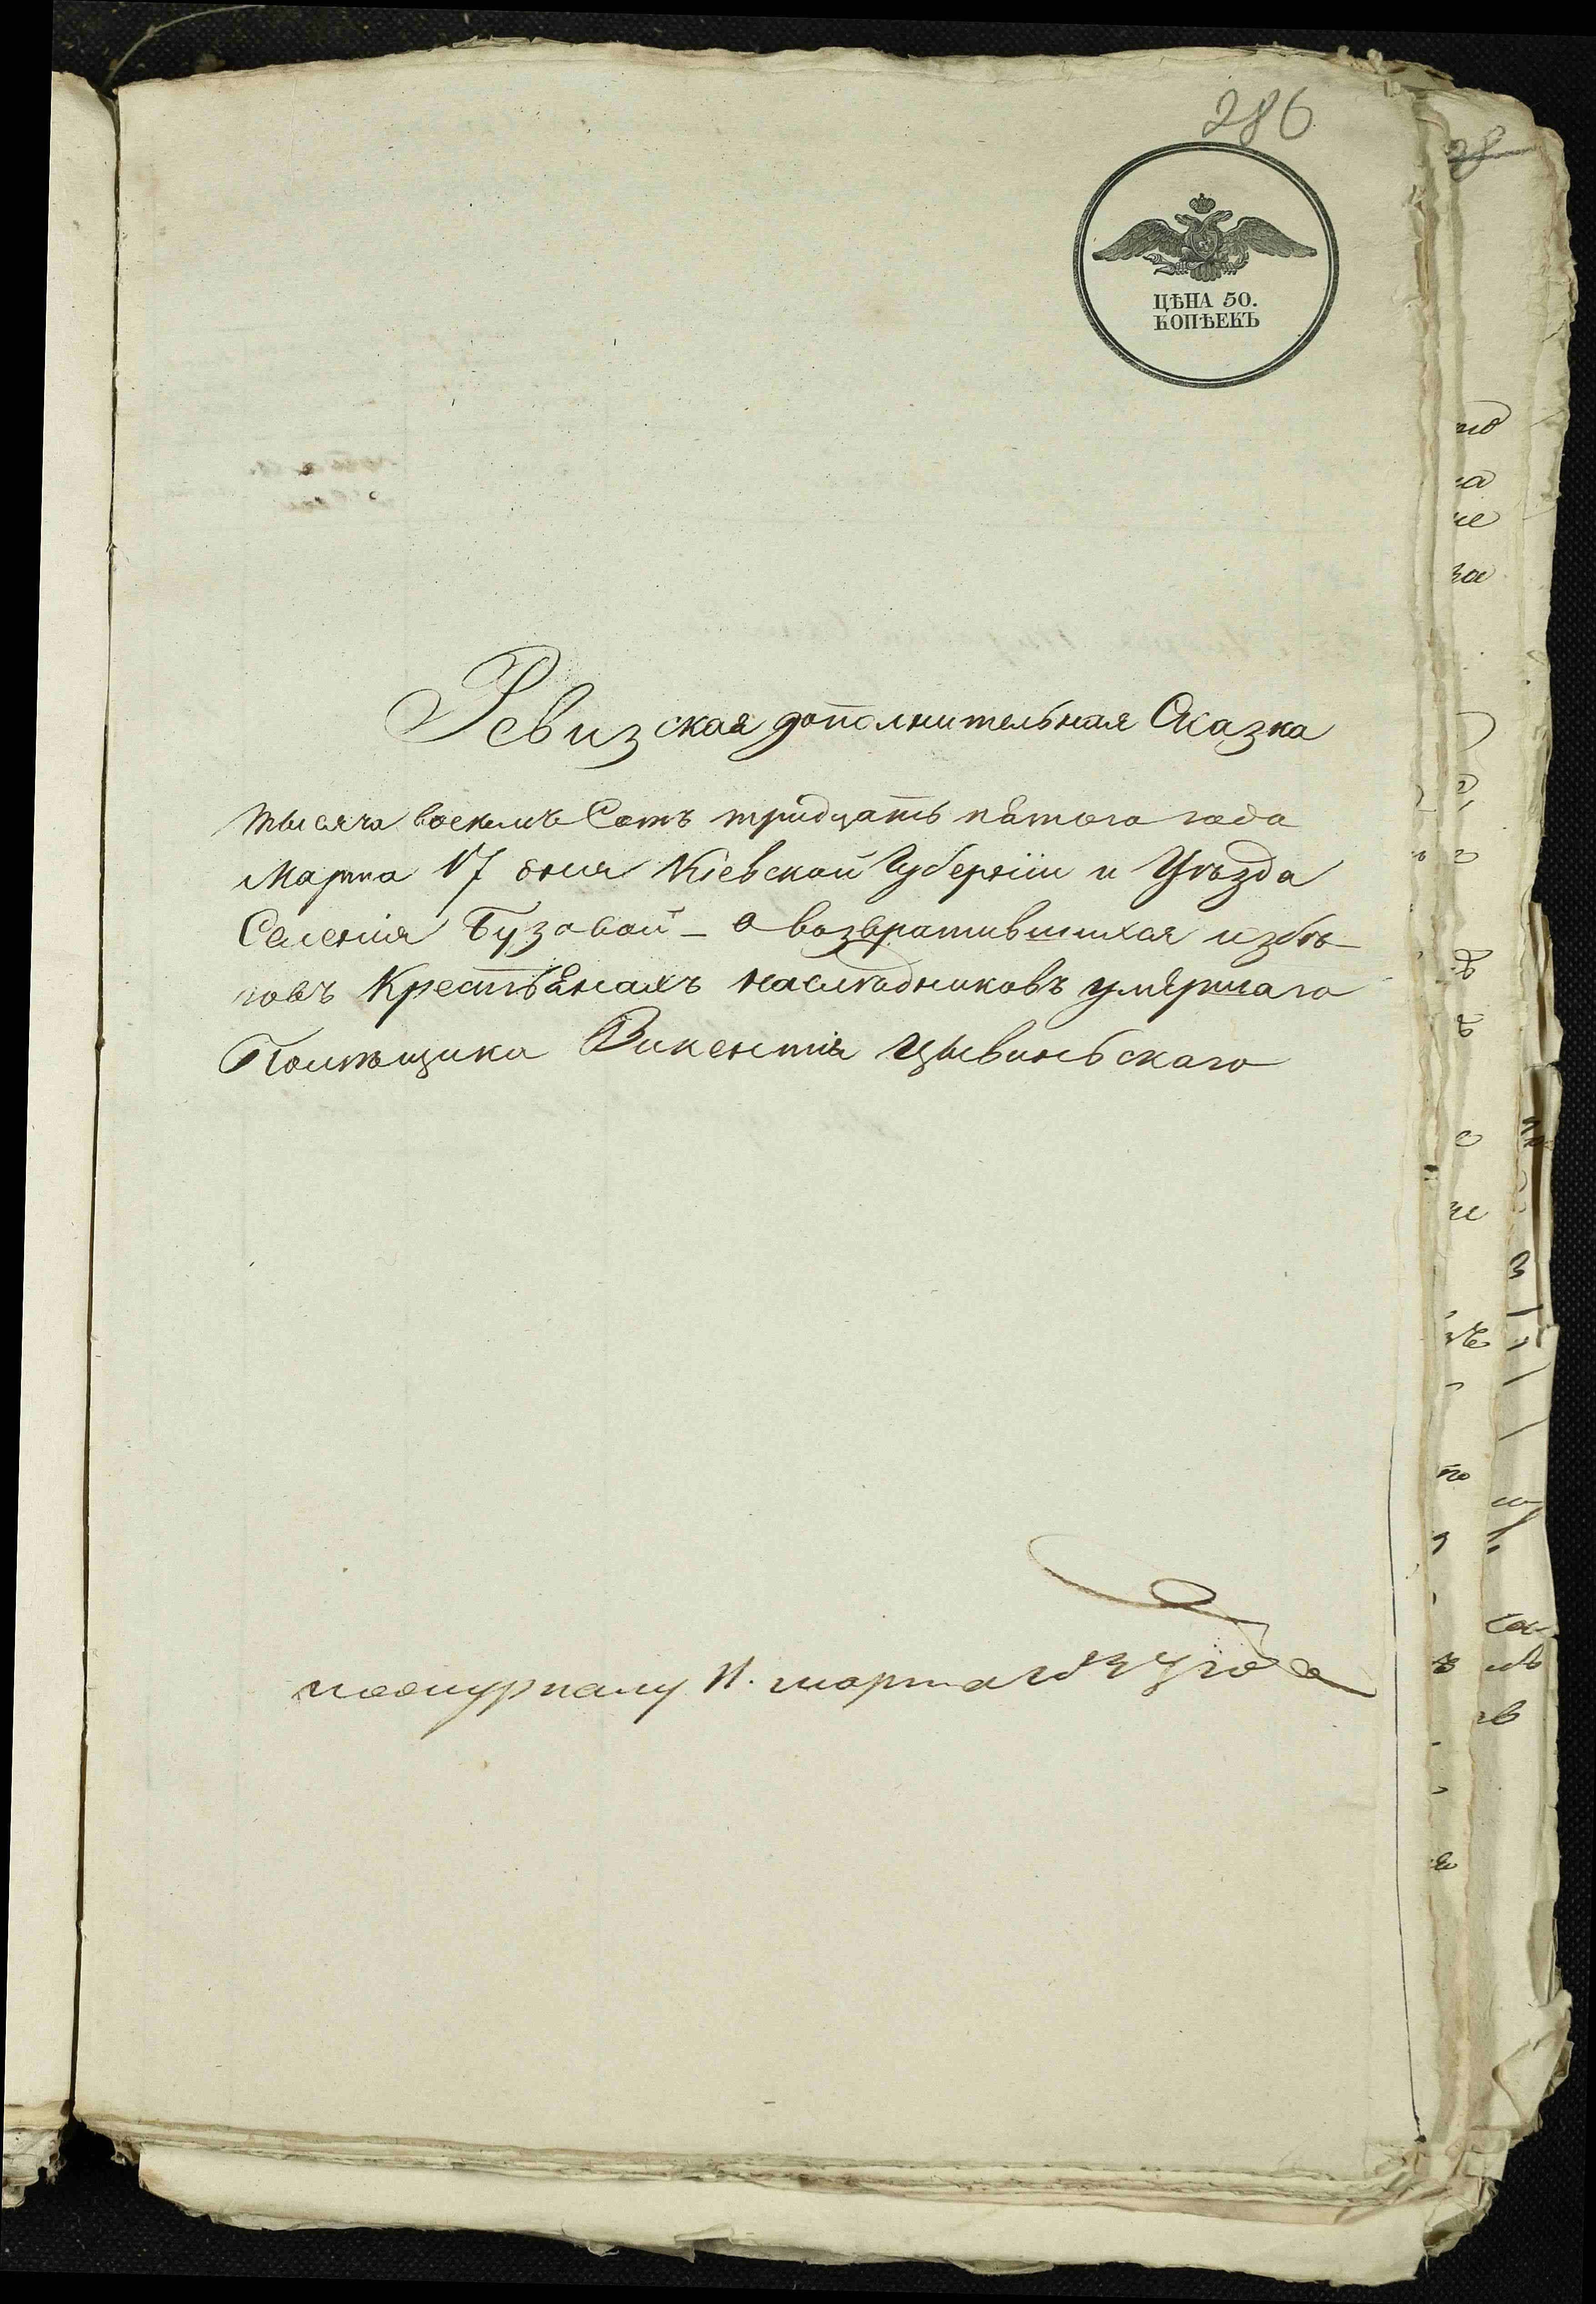 286
ЦѢНА 50.
КОПѢЕКЪ
Ревизская дополнительная Сказка
тысяча восемъ Сотъ тридцать пятого года
Марта 17 дня Кіевской Губерніи и Уѣзда
Селенія Бузовой – о возвратившихся избѣ-
говъ Крестьянахъ наслѣдниковъ умершаго
Помѣщика Викентія Цывинскаго
марта года